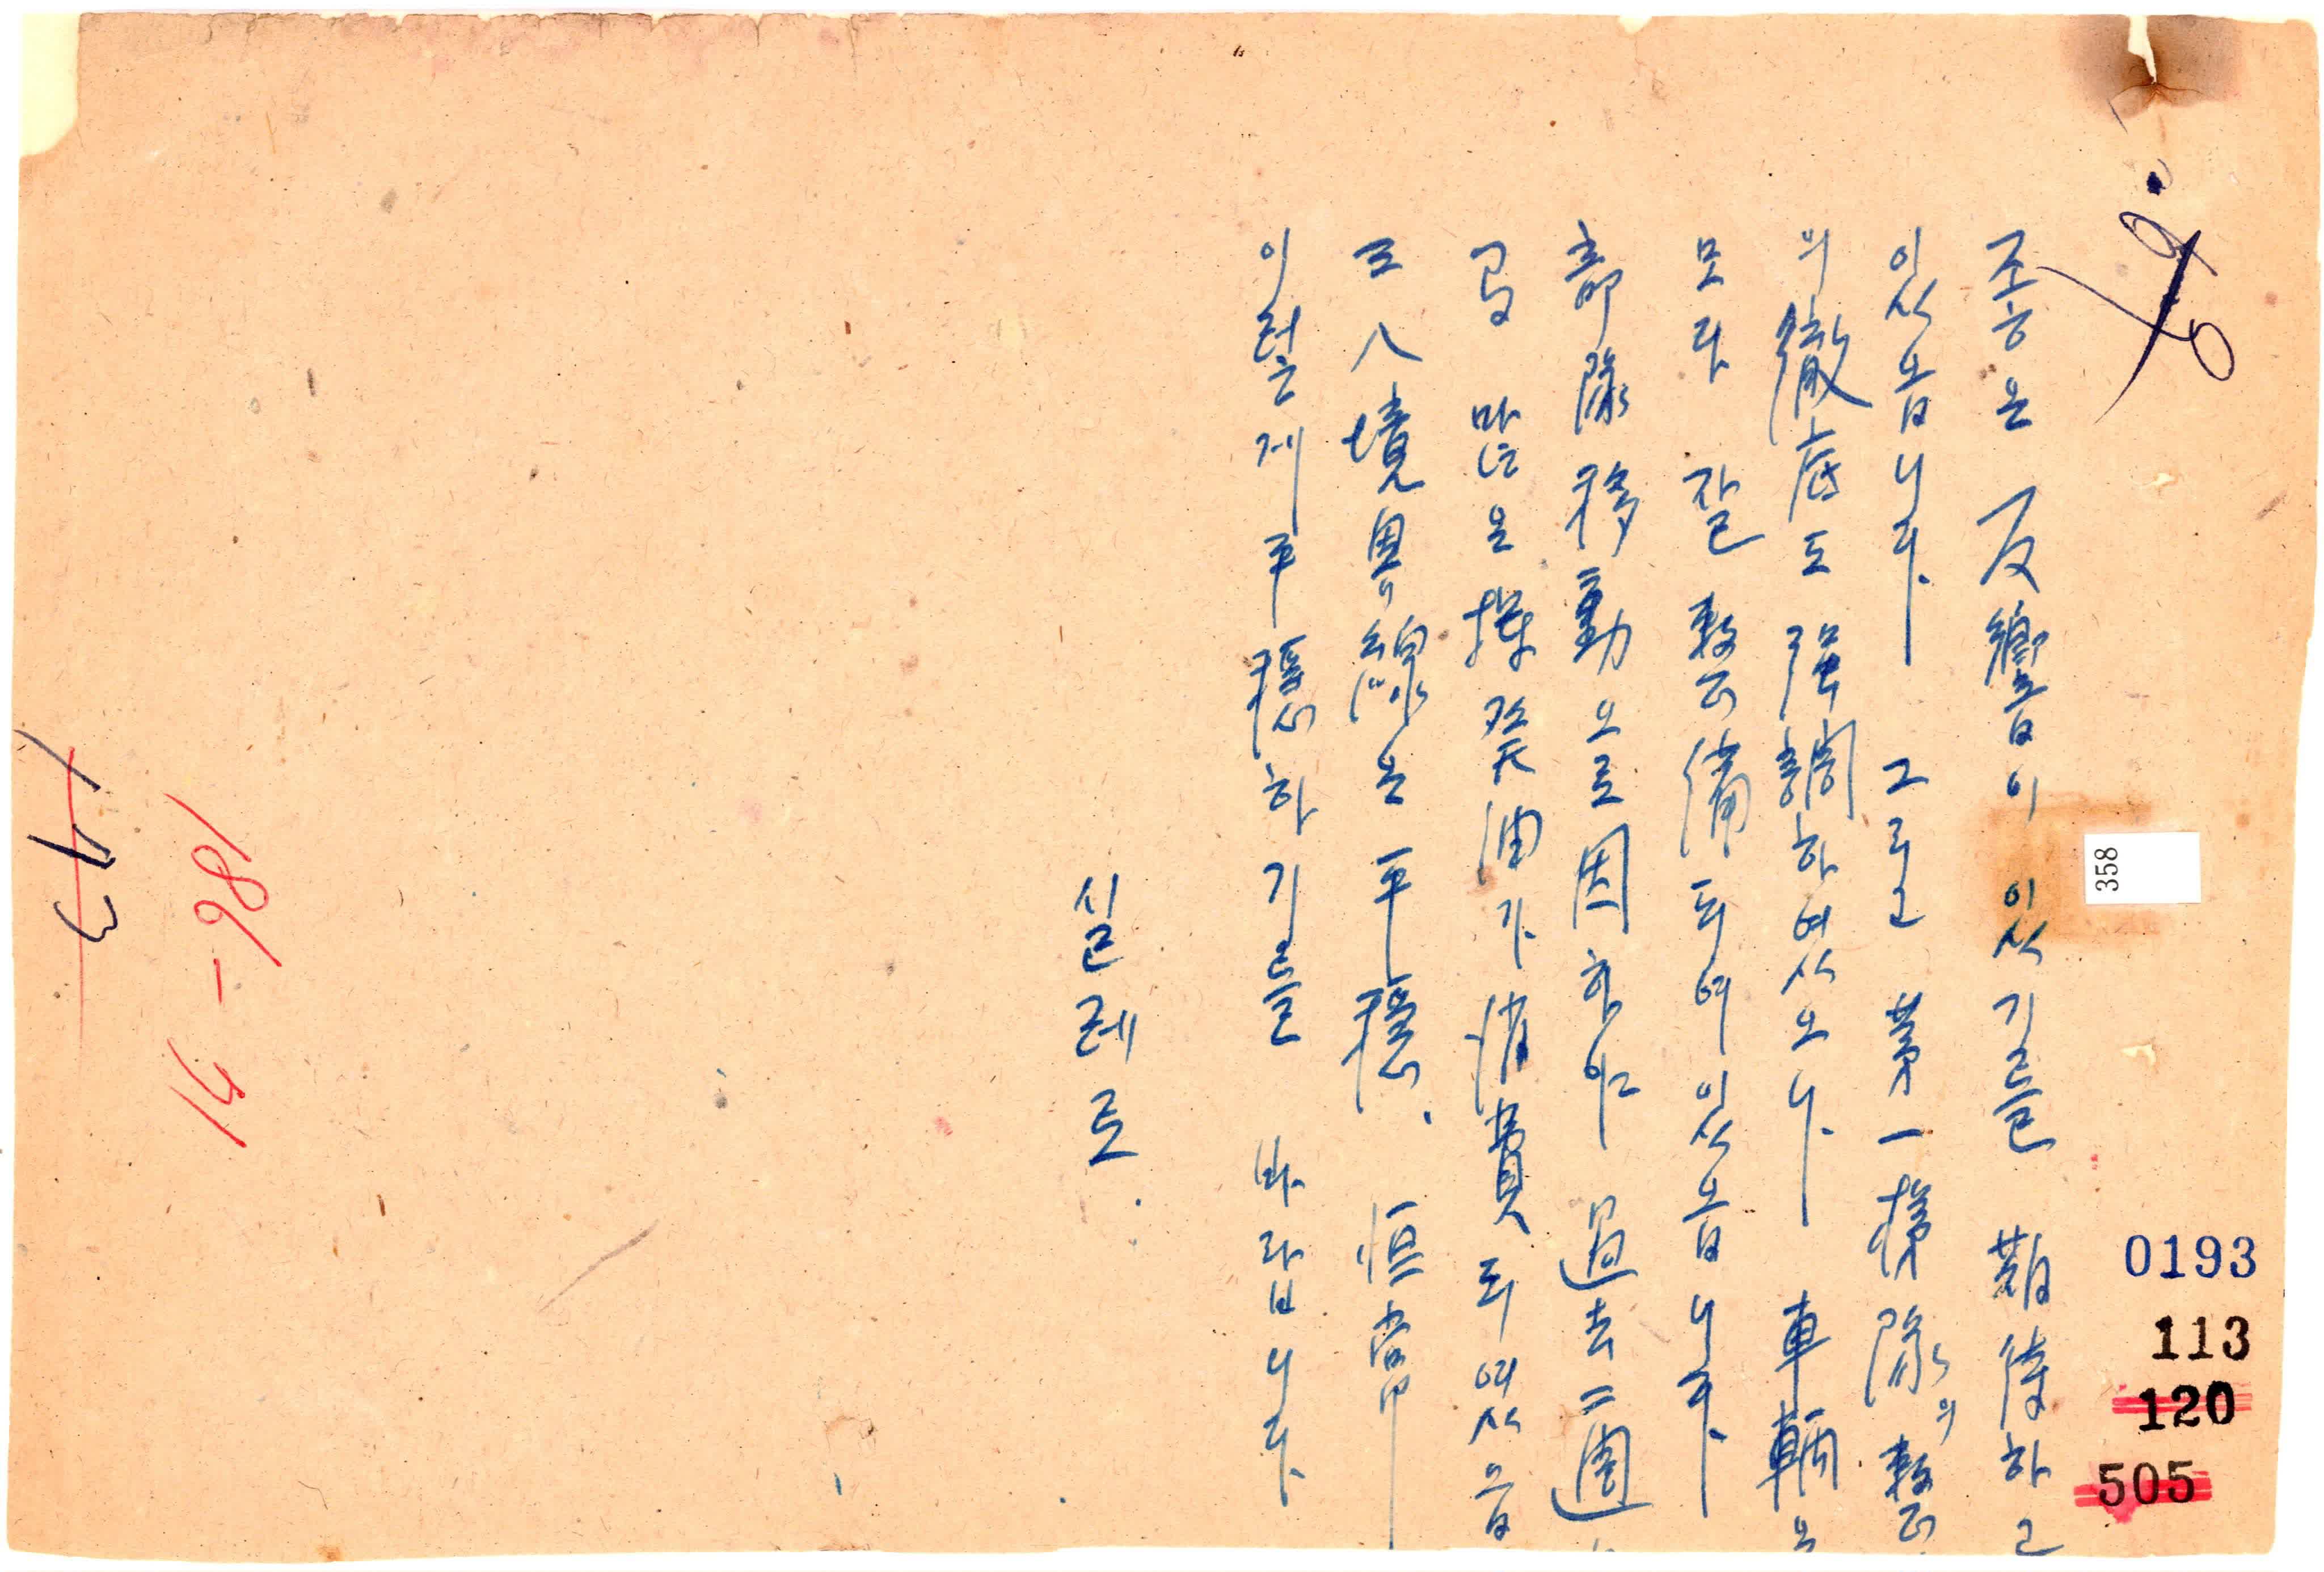 조흔 反響이 잇기를 期待하고
잇슴니다. 그리고 第一梯隊의 整備
의 徹底도 強調하엿스니 車輛은
모다 잘 整備되여 잇슴니다.
部隊移動으로 因하야 過去二週
만은 揮發油가 消費되엿슴
三八境界線은 平穩. 恒常
이럿게 平穩하기를 바랍니다.
실레로.
358
0193
113
120
505
143
186-14